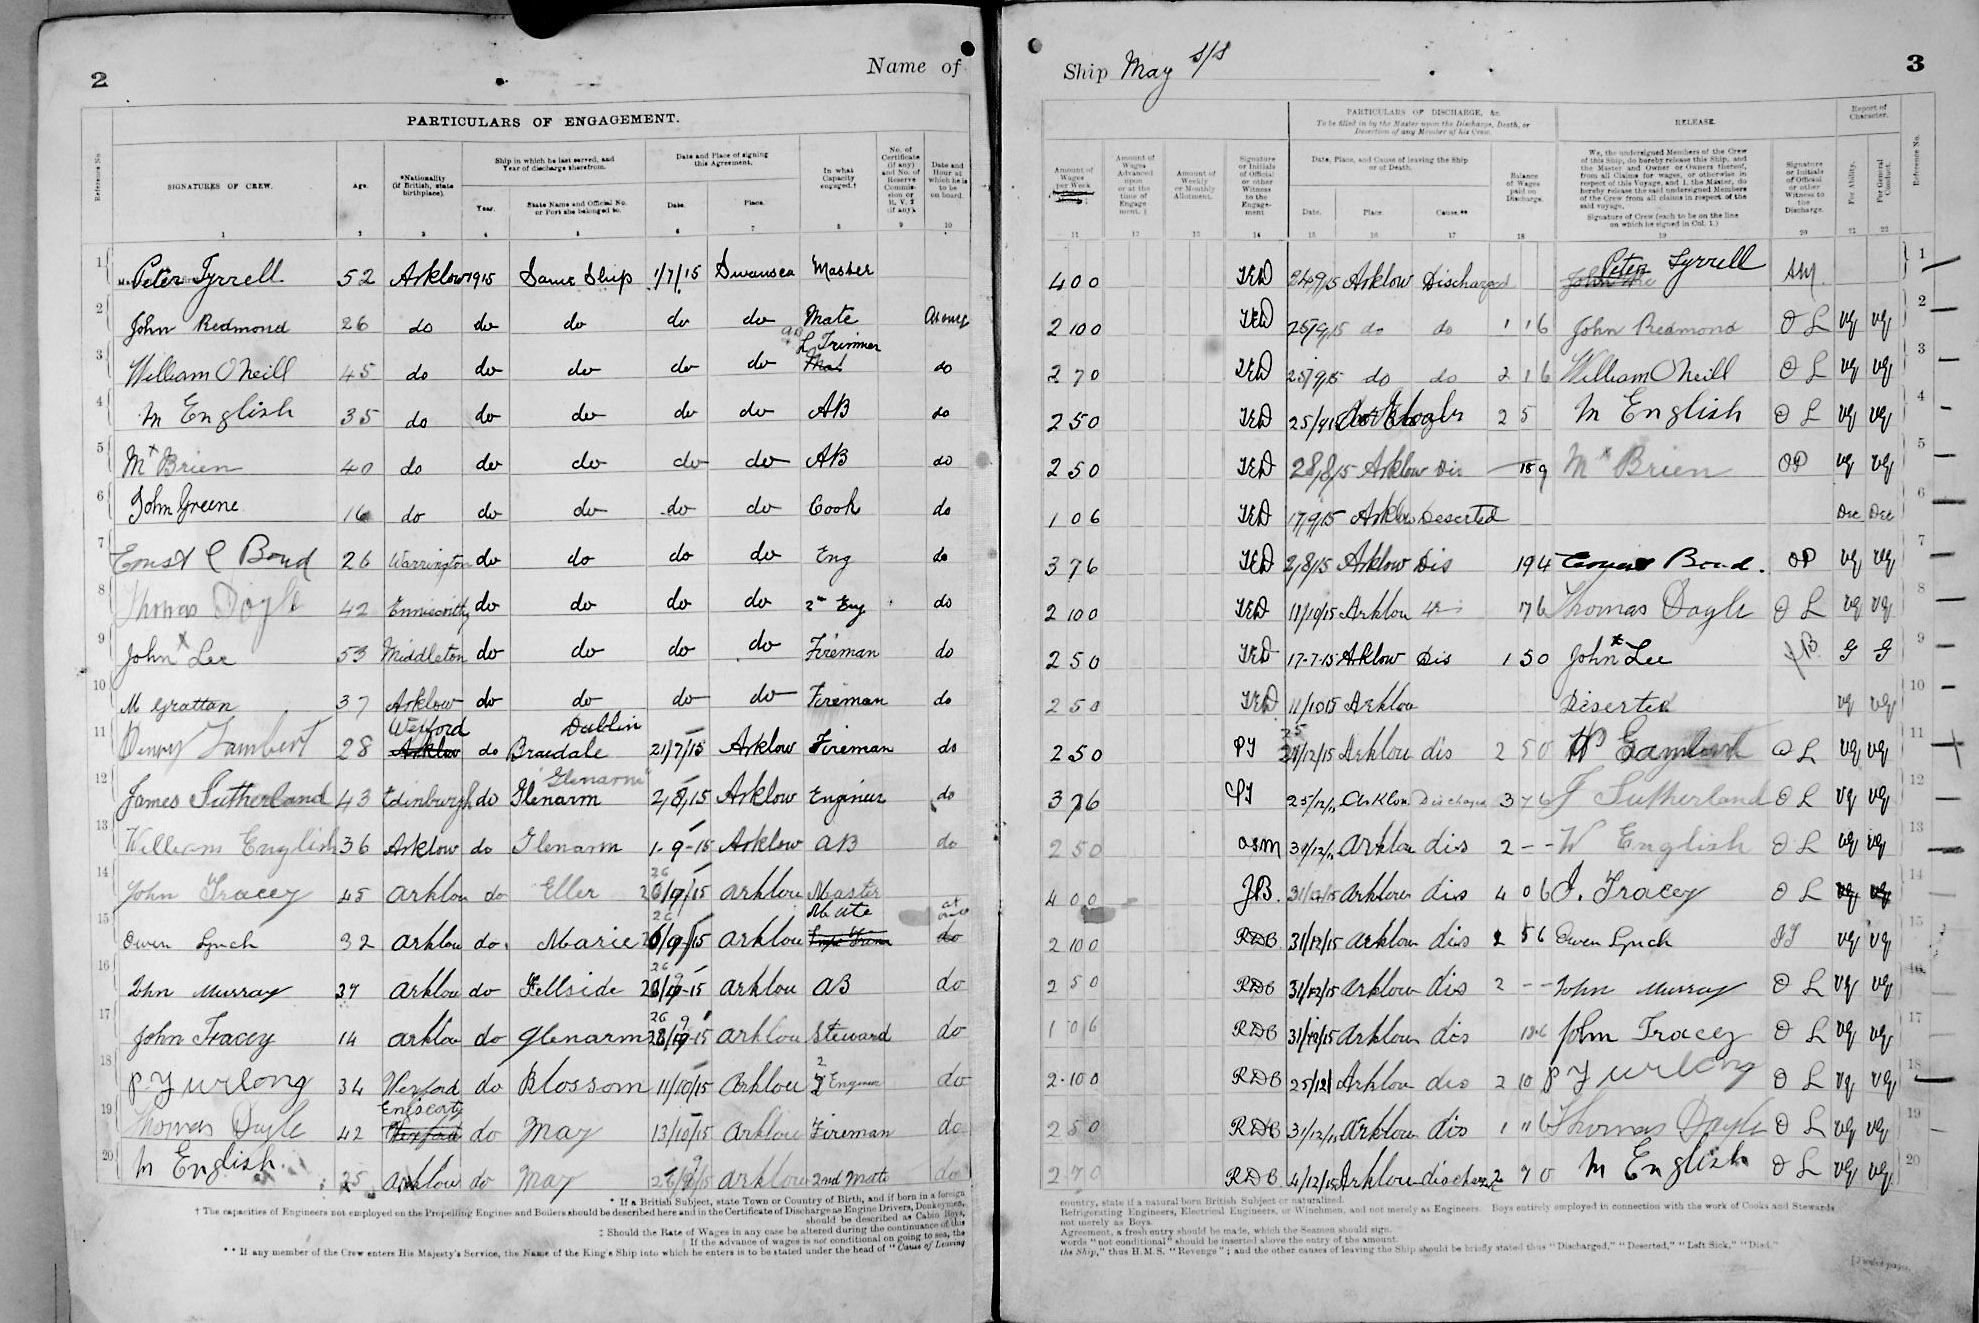 2
Name of
PARTICULARS OF ENGAGEMENT.
Reference No.
SIGNATURES OF CREW.
Age.
*Nationality (if British, state birthplace).
Ship in which he last served, and Year of discharge therefrom.
Year.
State Name and Official No. or Port she belonged to.
Date and Place of signing this Agreement.
Date.
Place.
In what Capacity engaged.†
No. of Certificate (if any) and No. of Reserve Commission or R.V.2 (if any).
Date and Hour at which he is to be on board.
1 2 3 4 5 6 7 8 9 10
1 Peter Tyrrell 52 Arklow 1915 Same Ship 1/7/15 Swansea Master
2 John Redmond 26 do do do do do Mate At once
3 William O'Neill 45 do do do do do Trimmer do
4 M English 35 do do do do do AB do
5 M x Brien 40 do do do do do AB do
6 John Greene 16 do do do do do Cook do
7 Ernst C Bond 26 Warrington do do do do Eng do
8 Thomas Doyle 42 Enniscorthy do do do do 2nd Eng do
9 John x Lee 53 Middleton do do do do Fireman do
10 M Grattan 37 Arklow do do do do Fireman do
11 Henry Lambert 28 Wexford Arklow do Braedale Dublin 21/7/15 Arklow Fireman do
12 James Sutherland 43 Edinburgh do Glenarm "Glenarm" 2/8/15 Arklow Engineer do
13 William English 36 Arklow do Glenarm 1-9-15 Arklow AB do
14 John Tracey 45 Arklow do Eller 26/9/15 Arklow Master
15 Owen Lynch 32 Arklow do. Marie 26/9/15 Arklow Mate at once do
16 John Murray 37 Arklow do Fellside 26/9-15 Arklow AB do
17 John Tracey 14 Arklow do Glenarm 26/9-15 Arklow Steward do
18 P Furlong 34 Wexford do Blossom 11/10/15 Arklow 2 Engineer do
19 Thomas Doyle 42 Eniscorty Wexford do May 13/10/15 Arklow Fireman do
20 M English. 35 Arklow do May 26/9/15 Arklow 2nd Mate do
* If a British Subject, state Town or Country of Birth, and if born in a foreign
† The capacities of Engineers not employed on the Propelling Engines and Boilers should be described here and in the Certificate of Discharge as Engine Drivers, Donkeymen,
should be described as Cabin Boys,
‡ Should the Rate of Wages in any case be altered during the continuance of this
|| If the advance of wages is not conditional on going to sea, the
** If any member of the Crew enters His Majesty's Service, the Name of the King's Ship into which he enters is to be stated under the head of "Cause of Leaving
Ship May S/S
3
Amount of Wages per Week
Amount of Wages Advanced upon or at the time of Engagement.‡
Amount of Weekly or Monthly Allotment.
Signature or Initials of Official or other Witness to the Engagement
PARTICULARS OF DISCHARGE, &c.
To be filled in by the Master upon the Discharge, Death, or Desertion of any Member of his Crew.
Date, Place, and Cause of leaving the Ship or of Death.
Date.
Place.
Cause.**
Balance of Wages paid on Discharge.
RELEASE.
We, the undersigned Members of the Crew of this Ship, do hereby release this Ship, and the Master and Owner or Owners thereof, from all Claims for wages, or otherwise in respect of this Voyage, and I, the Master, do hereby release the said undersigned Members of the Crew from all claims in respect of the said voyage.
Signature of Crew (each to be on the line on which he signed in Col. 1.)
Signature or Initials of Official or other Witness to the Discharge.
Report of Character.
For Ability.
For General Conduct.
Reference No.
11 12 13 14 15 16 17 18 19 20 21 22
4 0 0 TED 24/9/15 Arklow Discharged Peter Tyrrell 1
2 10 0 TED 25/9/15 do do 1 1 6 John Redmond O L VG VG 2
2 7 0 TED 25/9/15 do do 2 1 6 William O'Neill O L VG VG 3
2 5 0 TED 2 5 M English O L VG VG 4
2 5 0 TED 28/8/15 Arklow Dis 18 9 M x Brien OP VG VG 5
1 0 6 TED 17/9/15 Arklow Deserted Dec Dec 6
3 7 6 TED 2/8/15 Arklow Dis 19 4 Ernest Bond. OP VG VG 7
2 10 0 TED 11/10/15 Arklow 7 6 Thomas Doyle O L VG VG 8
2 5 0 TED 17-7-15 Arklow Dis 1 5 0 John x Lee JB G G 9
2 5 0 TED 11/10/15 Arklow Diserted VG VG 10
2 5 0 PJ 25/12/15 Arklow dis 2 5 0 H Lambert O L VG VG 11
3 7 6 PJ 25/12/15 Arklow Discharge 3 7 6 J Sutherland O L VG VG 12
2 5 0 OSM 31/12/15 Arklow dis 2 - - W English O L VG VG 13
4 0 0 JB. 31/12/15 Arklow dis 4 0 6 J. Tracey O L VG VG 14
2 10 0 RDB 31/12/15 Arklow dis 2 5 6 Owen Lynch JT VG VG 15
2 5 0 RDB 31/12/15 Arklow dis 2 - - John Murray O L VG VG 16
1 0 6 RDB 31/12/15 Arklow dis 18-6 John Tracey O L VG VG 17
2 10 0 RDB 25/12/ Arklow dis 2 10 P Furlong O L VG VG 18
2 5 0 RDB 31/12/15 Arklow dis 1 11 6 Thomas Doyle O L VG VG 19
2 7 0 RDB 4/12/15 Arklow discharge 2 7 0 M English O L VG VG 20
country, state if a natural born British Subject or naturalized.
Refrigerating Engineers, Electrical Engineers, or Winchmen, and not merely as Engineers. Boys entirely employed in connection with the work of Cooks and Stewards
not merely as Boys.
Agreement, a fresh entry should be made, which the Seamen should sign.
words "not conditional" should be inserted above the entry of the amount.
the Ship," thus H.M.S. "Revenge"; and the other causes of leaving the Ship should be briefly stated thus "Discharged," "Deserted," "Left Sick," "Died."
[Twelve pages.